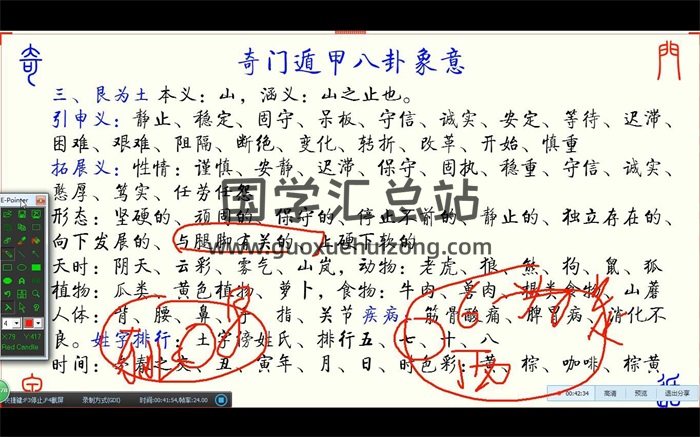 奇門
奇门遁甲八卦象意
三、艮为土 本义：山，涵义：山之止也。
引申义：静止、稳定、固守、呆板、守信、诚实、安定、等待、迟滞、
困难、艰难、阻隔、断绝、变化、转折、改革、开始、慎重
拓展义：性情：谨慎、安静、迟滞、保守、固执、稳重、守信、诚实、
憨厚、笃实、任劳任怨
国学汇总站
形态：坚硬的、顽固的、保守的、停止不前的、静止的、独立存在的、
向下发展的、与腿脚有关的、上硬下软的
www.guoxuehuizong.com
天时：阴天、云彩、雾气、山岚，动物：老虎、狼、熊、狗、鼠、狐
植物：瓜类、黄色植物、萝卜，食物：牛肉、兽肉、根类食物、山蘑
人体：背、腰、鼻、手指、关节 疾病：筋骨酸痛、脾胃病、消化不
良。姓字排行：土字傍姓氏、排行五、七、十、八
时间：冬春之交、丑、寅年、月、日、时 色彩：黄、棕、咖啡、棕黄
E-Pointer
4
X:79
Y:417
Red Candle
F3停止,F4截屏
录制方式(GDI)
时间:00:41:54,帧率:24.00
00:42:34
高清
预览
退出分享